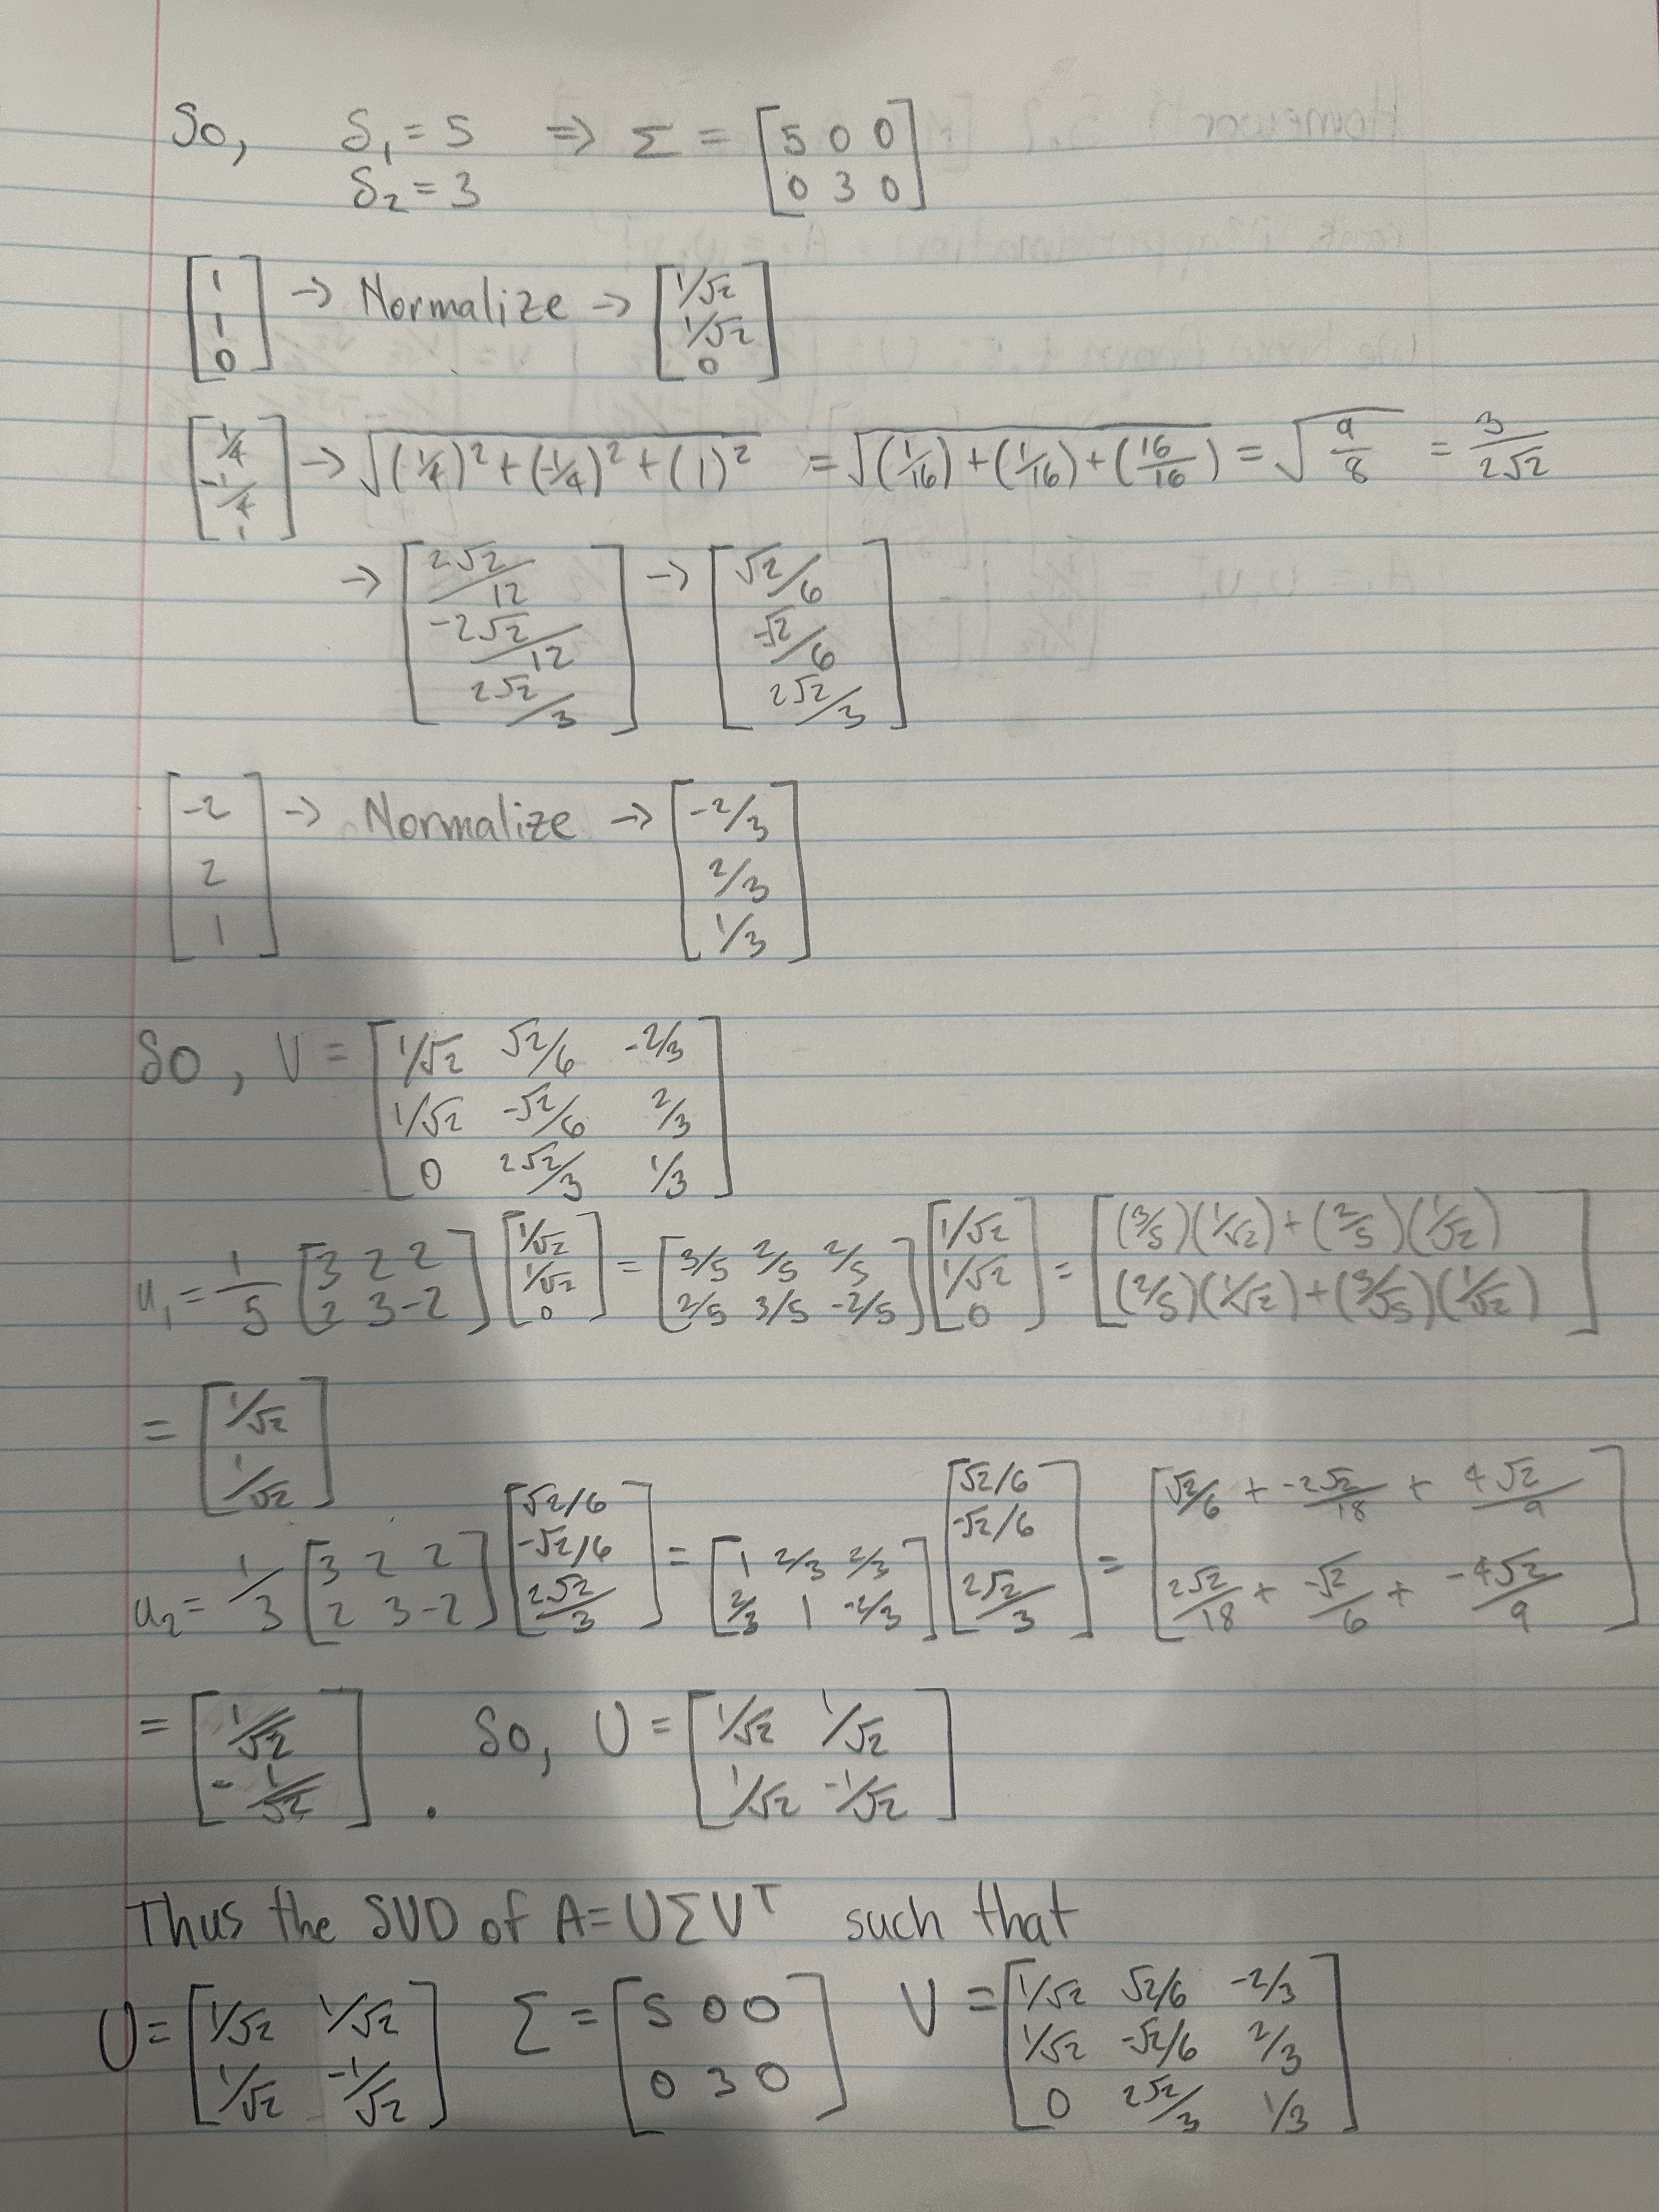 So, δ₁ = 5 ⇒ Σ = [5 0 0; 0 3 0]
δ₂ = 3
[1; 1; 0] → Normalize → [1/√2; 1/√2; 0]
[1/4; -1/4; 1] → √((1/4)² + (-1/4)² + (1)²) = √((1/16) + (1/16) + (16/16)) = √(9/8) = 3/(2√2)
→ [2√2/12; -2√2/12; 2√2/3] → [√2/6; -√2/6; 2√2/3]
[-2; 2; 1] → Normalize → [-2/3; 2/3; 1/3]
So, V = [1/√2 √2/6 -2/3; 1/√2 -√2/6 2/3; 0 2√2/3 1/3]
u₁ = 1/5 [3 2 2; 2 3 -2] [1/√2; 1/√2; 0] = [3/5 2/5 2/5; 2/5 3/5 -2/5] [1/√2; 1/√2; 0] = [(3/5)(1/√2) + (2/5)(1/√2); (2/5)(1/√2) + (3/5)(1/√2)]
= [1/√2; 1/√2]
u₂ = 1/3 [3 2 2; 2 3 -2] [√2/6; -√2/6; 2√2/3] = [1 2/3 2/3; 2/3 1 -2/3] [√2/6; -√2/6; 2√2/3] = [√2/6 + -2√2/18 + 4√2/9; 2√2/18 + -√2/6 + -4√2/9]
= [1/√2; -1/√2]. So, U = [1/√2 1/√2; 1/√2 -1/√2]
Thus the SVD of A = UΣVᵀ such that
U = [1/√2 1/√2; 1/√2 -1/√2] Σ = [5 0 0; 0 3 0] V = [1/√2 √2/6 -2/3; 1/√2 -√2/6 2/3; 0 2√2/3 1/3]